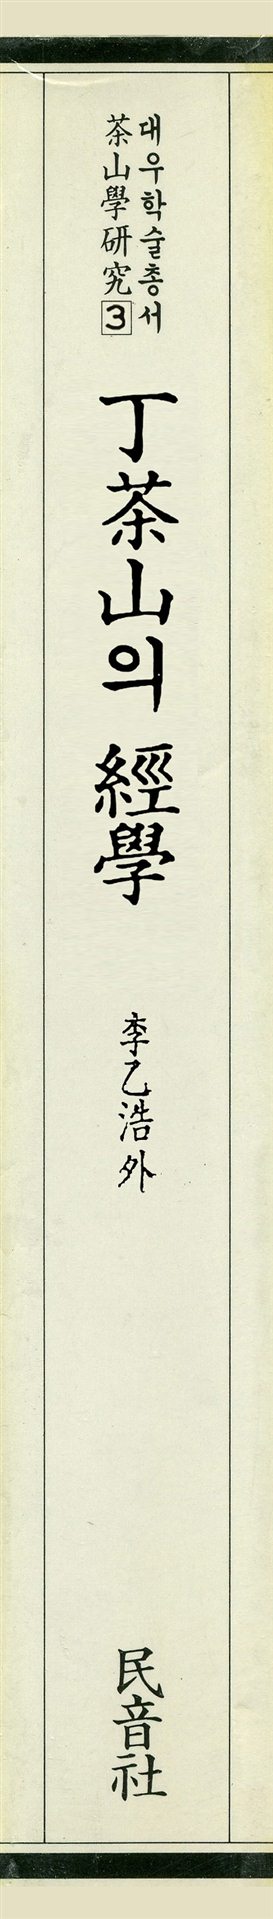 대우학술총서
茶山學硏究 3
丁茶山의 經學
李乙浩 外
民音社